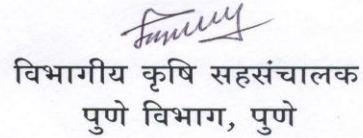 विभागीय कृषि सहसंचालक
पुणे विभाग, पुणे